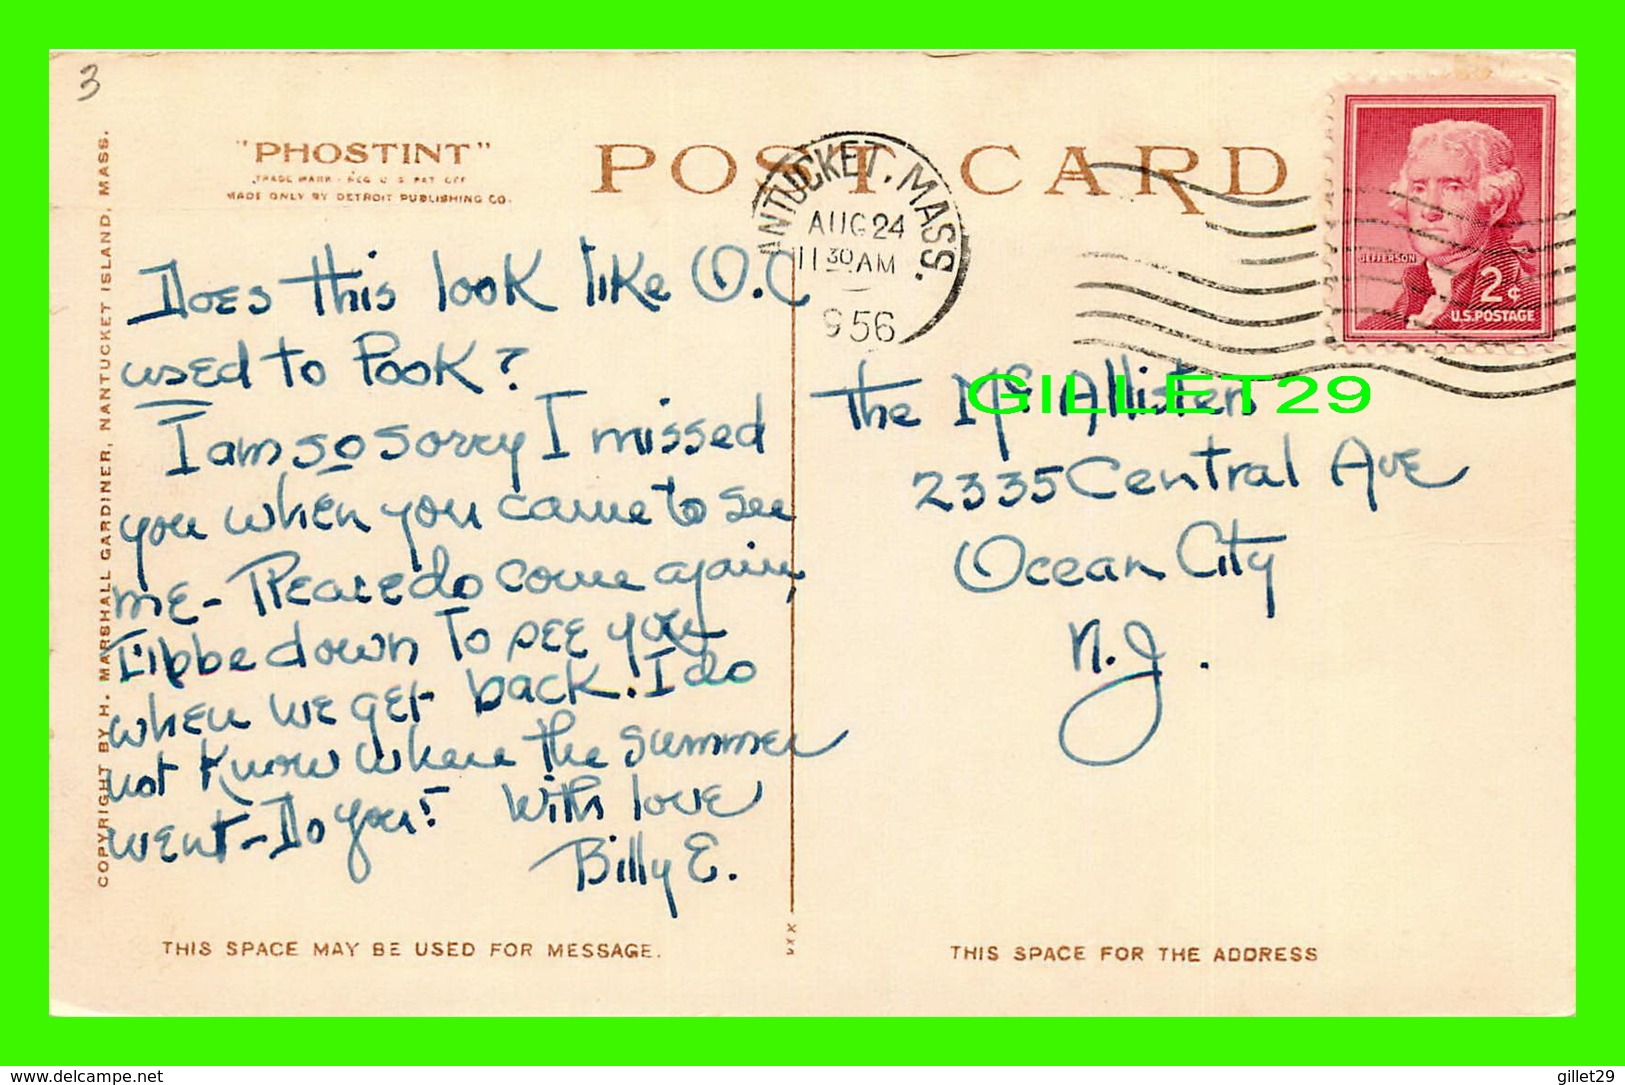 3
"PHOSTINT"
TRADE MARK - REG. U. S. PAT. OFF.
MADE ONLY BY DETROIT PUBLISHING CO.
POST CARD
ANTUCKET, MASS.
AUG 24
11 30 AM
956
JEFFERSON
2¢
U.S. POSTAGE
COPYRIGHT BY H. MARSHALL GARDINER, NANTUCKET ISLAND, MASS.
Does this look like O.C
used to look?
I am so sorry I missed
you when you came to see
me - Please do come again,
I'll be down to see you
when we get back. I do
not know where the summer
went - Do you? With love
Billy E.
The Mc Allisters
2335 Central Ave
Ocean City
N.J.
GILLET29
THIS SPACE MAY BE USED FOR MESSAGE.
THIS SPACE FOR THE ADDRESS
https://www.delcampe.net
gillet29